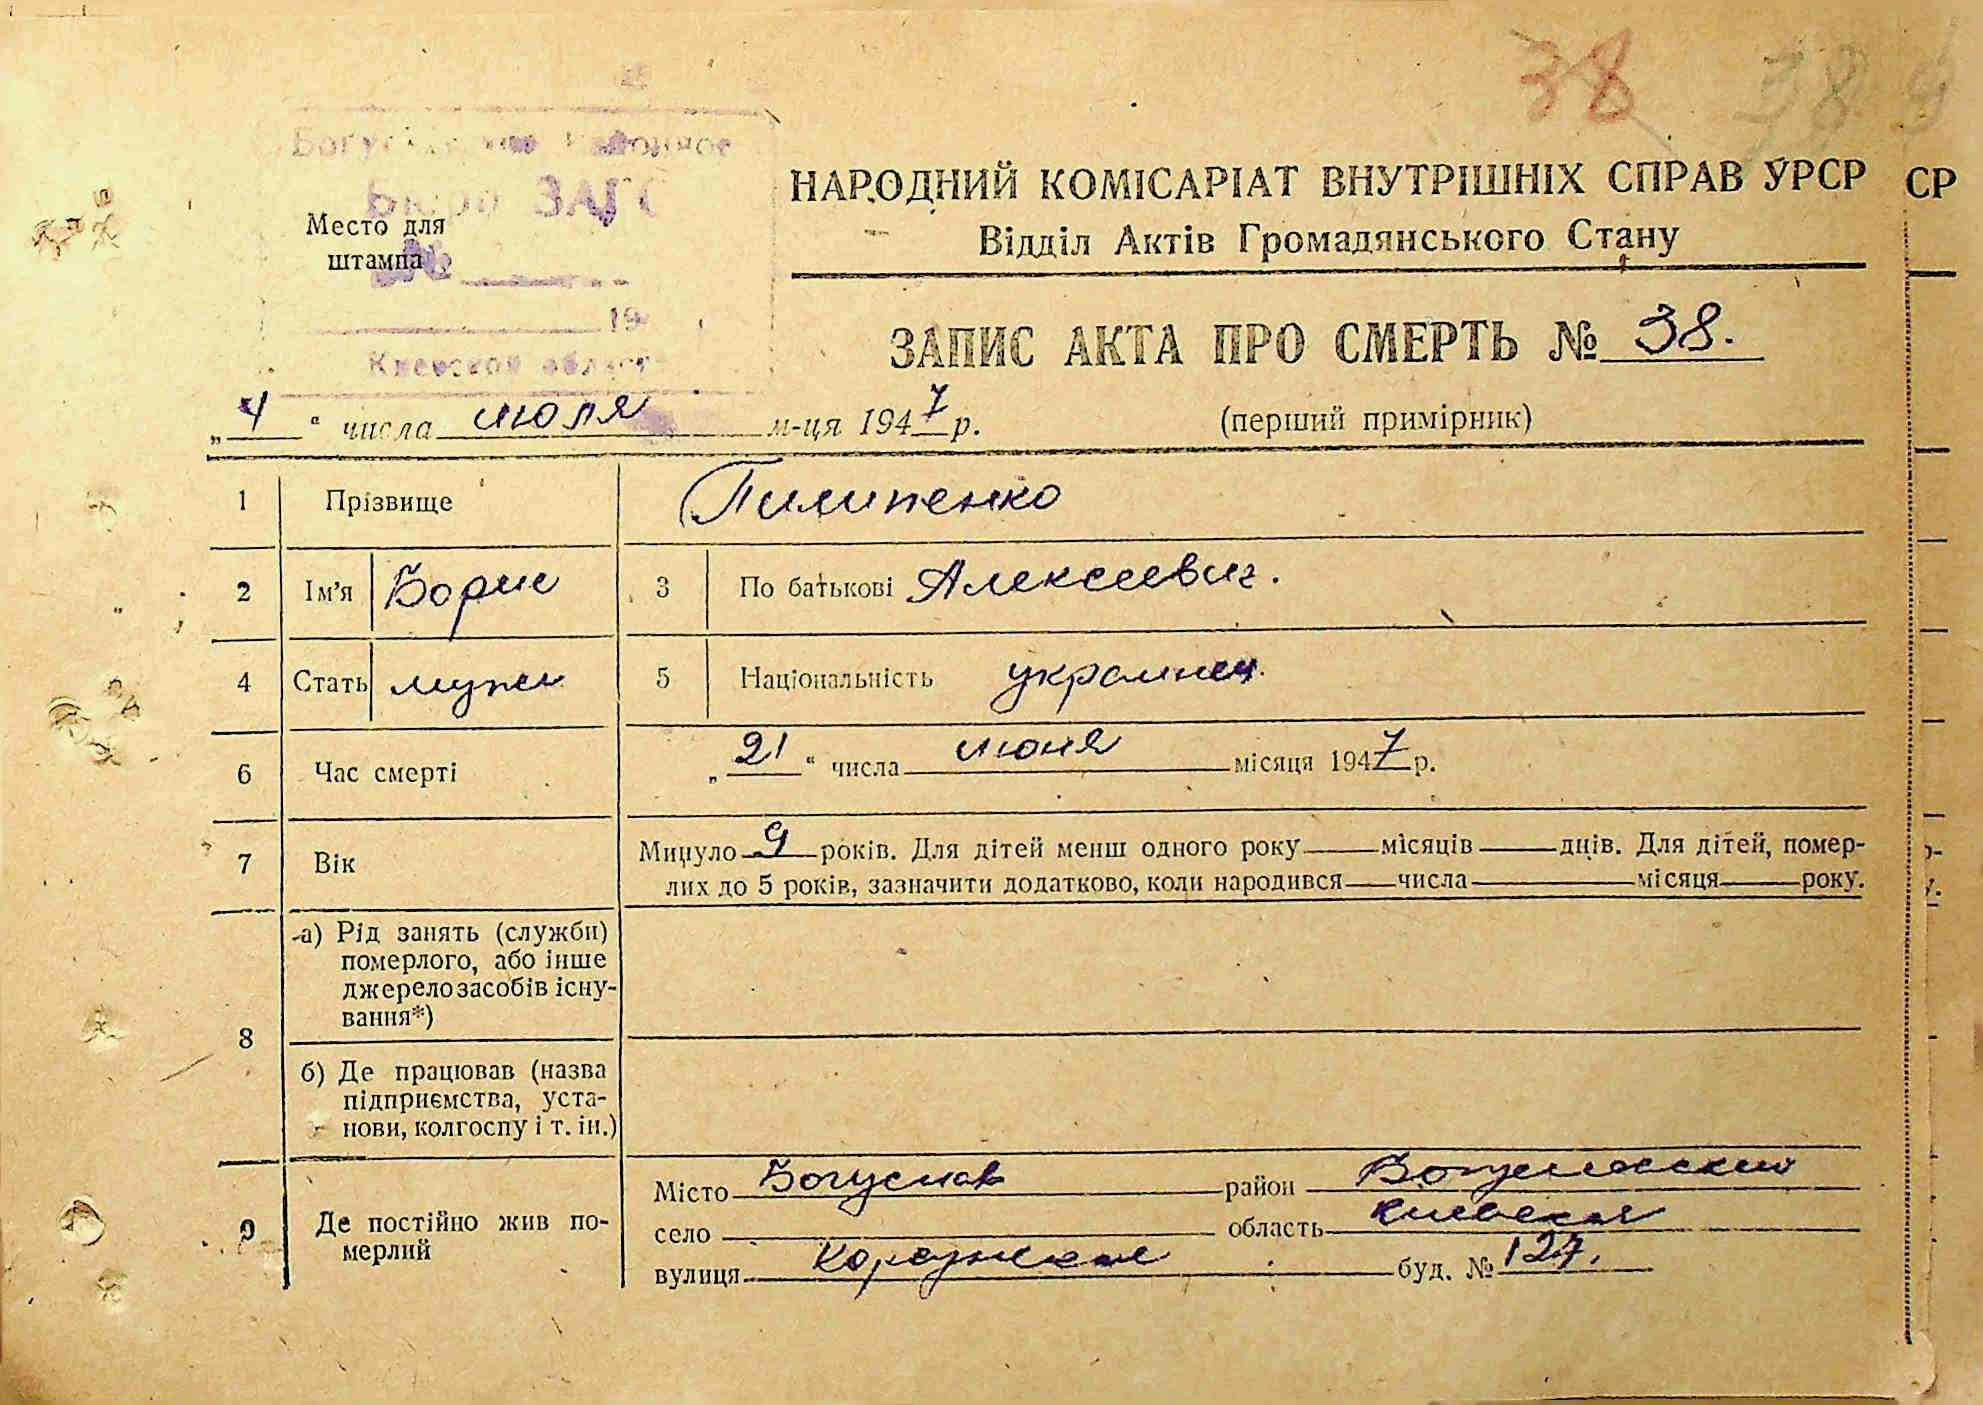 38 38
Богуславское районное
Бюро ЗАГС
Место для
штампа
19
Киевской област
НАРОДНИЙ КОМІСАРІАТ ВНУТРІШНІХ СПРАВ УРСР СР
Відділ Актів Громадянського Стану
ЗАПИС АКТА ПРО СМЕРТЬ № 38.
„4“ числа июля м-ця 1947 р. (перший примірник)
1 Прізвище Пилипенко
2 Ім'я Борис 3 По батькові Алексеевич.
4 Стать мужск 5 Національність украинец.
6 Час смерті „21“ числа июня місяця 1947 р.
7 Вік Минуло 9 років. Для дітей менш одного року місяців днів. Для дітей, помер-
лих до 5 років, зазначити додатково, коли народився числа місяця року.
8 а) Рід занять (служби)
померлого, або інше
джерело засобів існу-
вання*)
б) Де працював (назва
підприємства, уста-
нови, колгоспу і т. ін.)
9 Де постійно жив по-
мерлий
Місто Богуслав район Богуславский
село область Киевская
вулиця Корсунская буд. № 127.